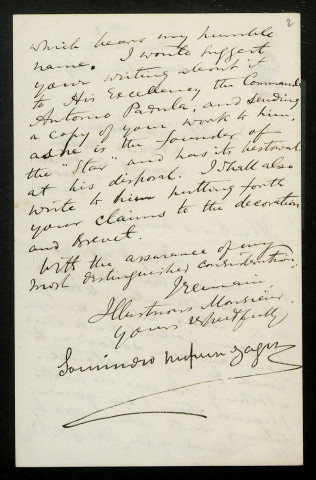 2
which bears my humble
name. I would suggest
your writing about it
to His Excellency the Commander
Antonio Padula, and sending
a copy of your work to him,
as he is the founder of
the "Star" and has its bestowal
at his disposal. I shall also
write to him putting forth
your claims to the decoration
and brevet.
With the assurance of my
most distinguished consideration,
I remain,
Illustrious Monsieur,
Yours respectfully
Sourindro Tagore